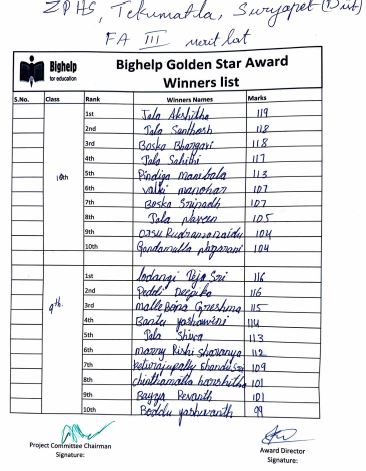 ZPHS, Tekumatla, Suryapet (Dist)
FA III merit list
Bighelp for education
Bighelp Golden Star Award
Winners list
S.No. Class Rank Winners Names Marks
10th
1st Jala Akshitha 119
2nd Jala Santhosh 118
3rd Boska Bhargavi 118
4th Jala Sahithi 117
5th Pindiga manibala 113
6th Valki manohar 107
7th Boska Srinadh 107
8th Jala naveen 105
9th Rudramanaidu 104
10th Gandamalla 104
9th.
1st Lodangi Teja Sri 116
2nd Peddi Deepika 116
3rd malleboina Greshma 115
4th Bantu yashaswini 114
5th Jala Shiva 113
6th marry Rishi Sharanya 112
7th 109
8th chinthamalla harshitha 101
9th Bayya Revanth 101
10th Boddu yashwanth 99
Project Committee Chairman
Signature:
Award Director
Signature: